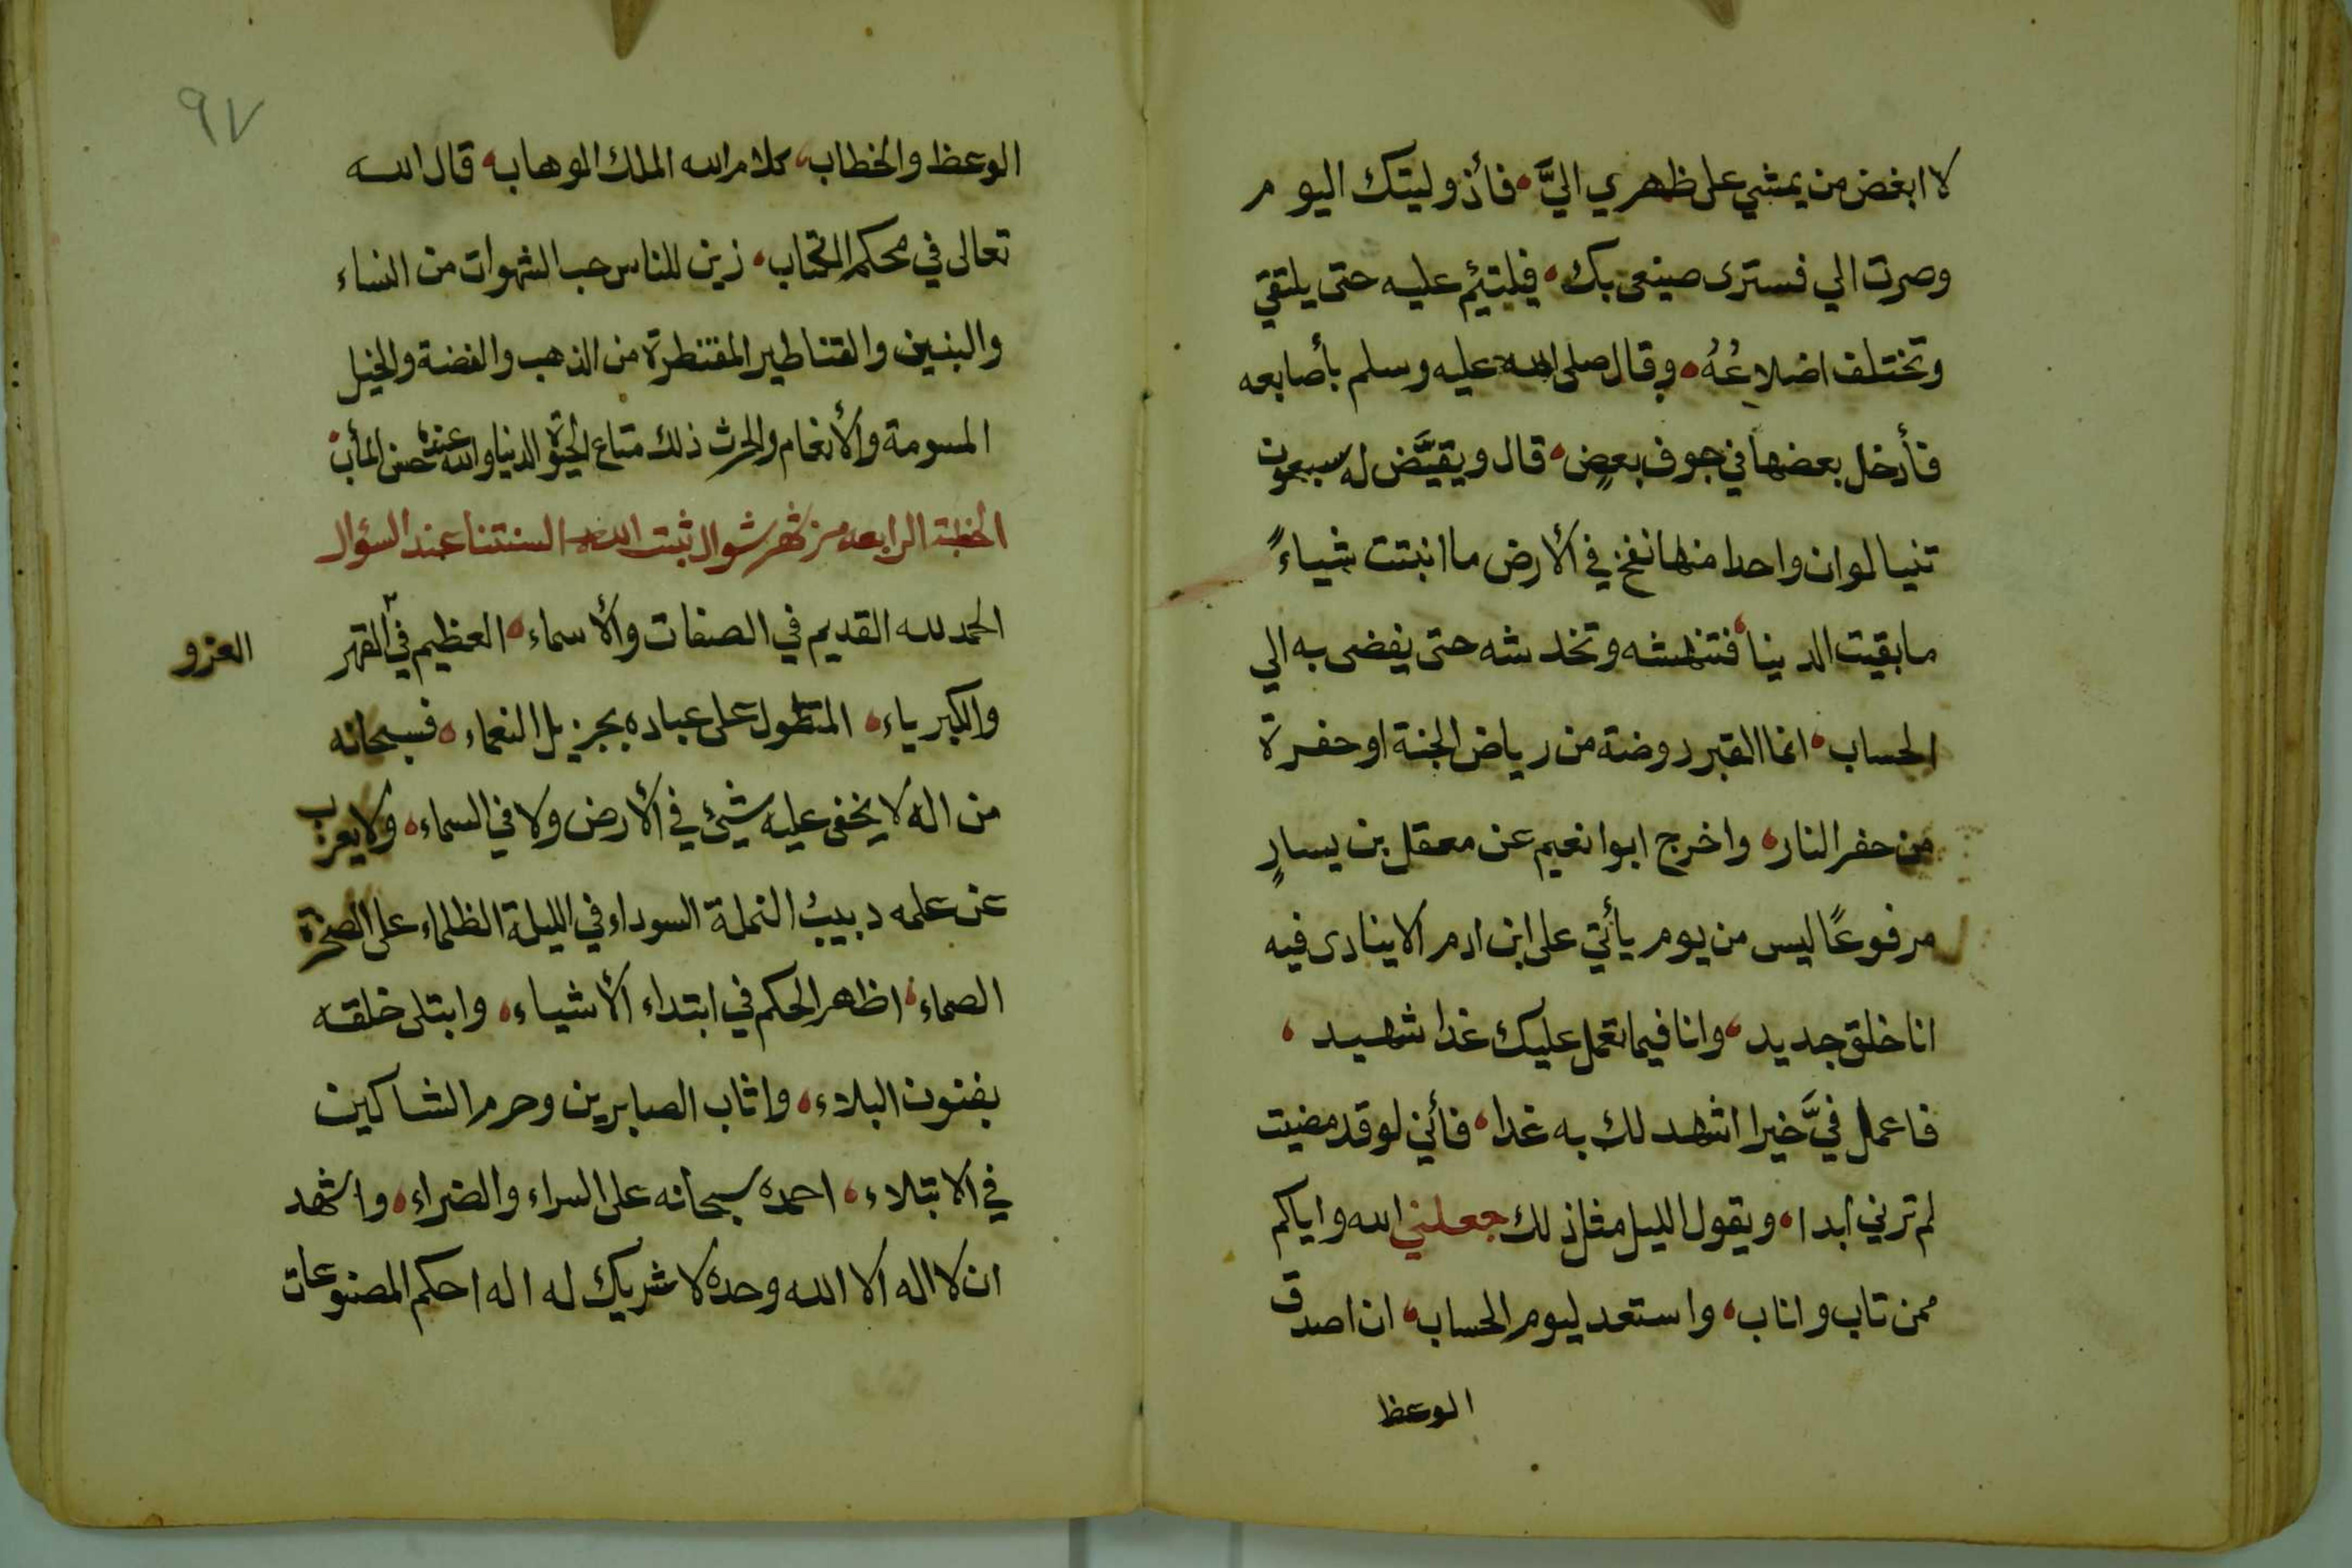 لا ابغض من يمشي على ظهري اليَّ، فأذ وليتك اليوم
وصرت الي فسترى صنيعي بك، فيلتئم عليه حتى يلتقي
وتختلف اضلاعُهُ، وقال صلى الله عليه وسلم بأصابعه
فأدخل بعضها في جوف بعضٍ، قال ويقيَّض له سبعون
تنيا لو ان واحدا منها نفخ في الأرض ما انبتت شياءً
ما بقيت الدينا، فتنهشه وتخدشه حتى يفضى به الي
الحساب، انما القبر روضة من رياض الجنة او حفرة
من حفر النار، واخرج ابوا نعيم عن معقل بن يسارٍ
مرفوعًا ليس من يوم يأتي على ابن ادم الا ينادى فيه
انا خلق جديد، وانا فيما تعمل عليك غدا شهيد،
فاعمل فيَّ خيرا اشهد لك به غدا، فأني لو قد مضيت
لم ترني ابدا، ويقول الليل مثل ذلك جعلني الله واياكم
ممن تاب واناب، واستعد ليوم الحساب، ان اصدق
الوعظ
٩٧
الوعظ والخطاب، كلام الله الملك الوهاب، قال الله
تعالى في محكم الكتاب، زين للناس حب الشهوات من النساء
والبنين والقناطير المقنطرة من الذهب والفضة والخيل
المسومة والأنعام والحرث ذلك متاع الحيوة الدنيا والله عنده حسن المأب،
الخطبة الرابعه من شهر شوال ثبت الله السنتنا عند السؤال
الحمد لله القديم في الصفات والأسماء، العظيم في القهر
العز و
والكبرياء، المتطول على عباده بجزيل النعماء، فسبحانه
من اله لا يخفى عليه شيئ في الأرض ولا في السماء، ولا يعزب
عن علمه دبيبُ النملة السوداء في الليلة الظلماء على الصخرة
الصماء، اظهر الحكم في ابتداء الأشياء، وابتلى خلقه
بفنون البلاء، واثاب الصابرين وحرم الشاكين
في الابتلاء، احمده سبحانه على السراء والضراء، واشهد
ان لا اله الا الله وحده لا شريك له اله احكم المصنوعات